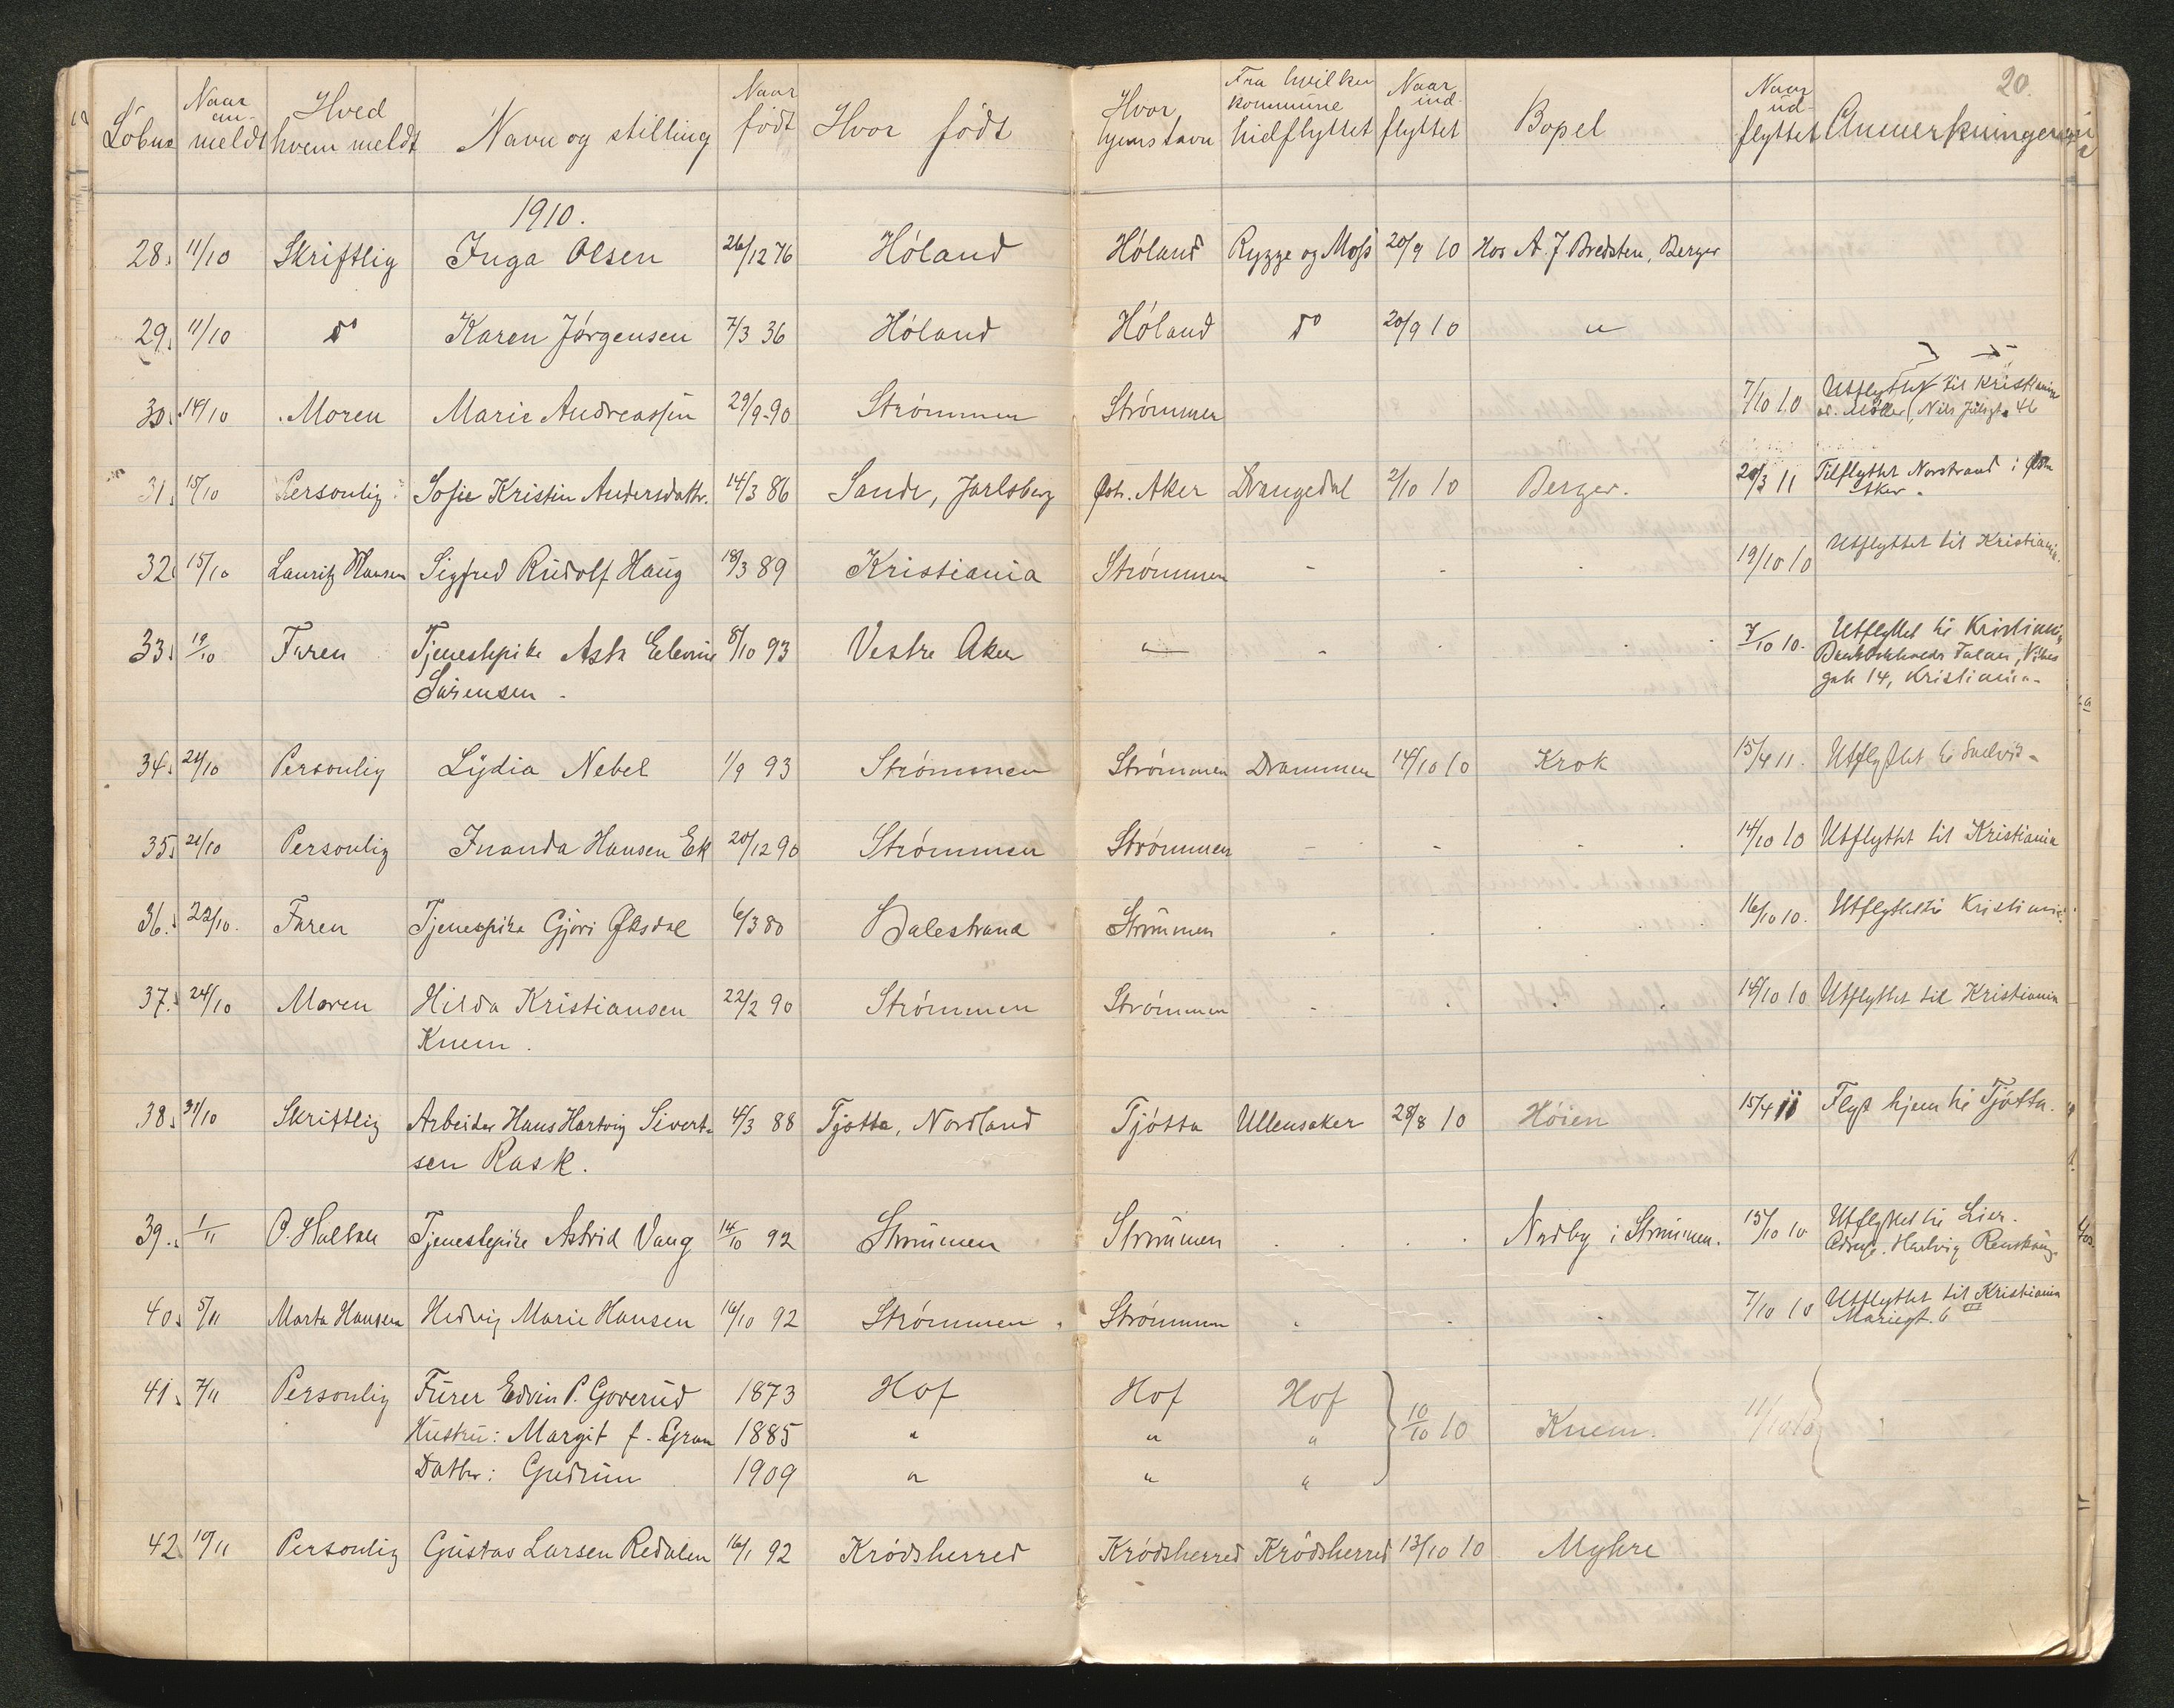 20.
Löbnr Naar anmeldt Hved hvem meldt Navn og stilling Naar födt Hvor födt Hvor hjemstavn Fra hvilken kommune hidflyttet Naar indflyttet Bopel Naar udflyttet Anmerkninger
1910.
28. 11/10 Skriftlig Inga Olsen 26/12 76 Höland Höland Rygge og Moss 20/9 10 Hos A. J. Bredsten, Berger
29. 11/10 do Karen Jörgensen 7/3 36 Höland Höland do 20/9 10 "
30. 14/10 Moren Marie Andreassen 29/9-90 Strömmen Strömmen 7/10 10 Utflyttet til Kristiania
Möller, Nils Juelsgt. 46
31. 15/10 Personlig Sofie Kristin Andersdattr. 14/3 86 Sande, Jarlsberg Östr. Aker Drangedal 2/10 10 Berger. 20/3 11 Tilflyttet Norstrand i Östre
Aker.
32. 15/10 Lauritz Hansen Sigfred Rudolf Haug 18/3 89 Kristiania Strömmen - - - 19/10 10 Utflyttet til Kristiania.
33. 19/10 Faren Tjenestepike Asta Elevine 8/10 93 Vestre Aker " - - - 7/10 10. Utflyttet til Kristiania,
Sörensen. Vibes
gate 14, Kristiania.
34. 20/10 Personlig Lydia Nebel 1/9 93 Strömmen Strömmen Drammen 14/10 10 Krok 15/4 11. Utflyttet til Svelvik.
35. 21/10 Personlig Inanda Hansen Ek 20/12 90 Strömmen Strömmen - - - 14/10 10 Utflyttet til Kristiania
36. 22/10. Faren Tjenespike Gjöri Öksdal 6/3 80 Balestrand Strömmen 16/10 10. Utflyttet til Kristiania.
37. 24/10 Moren Hilda Kristiansen 22/2 90 Strömmen Strömmen 14/10 10 Utflyttet til Kristiania
Knem.
38. 31/10 Skriftlig Arbeider Hans Hartvig Sivert- 4/3 88 Tjötta, Nordland Tjötta Ullensaker 28/8 10 Höien 15/4 11 Flyt hjem til Tjötta.
sen Rask.
39. 1/11 O. Holtan Tjenestepike Astrid Vang 14/10 92 Strömmen Strömmen Nordby i Strömmen. 15/10 10 Utflyttet til Lier.
Adresse. Hartvig
40. 5/11 Marta Hansen Hedvig Marie Hansen 16/10 92 Strömmen. Strömmen 7/10 10 Utflyttet til Kristiania
Mariegt. 6 III
41. 7/11 Personlig Furer Edvin P. Goverud 1873 Hof Hof Hof 10/10 10 Knem. 11/10 10
Hustru: Margit f. Gran 1885 " " "
Datter: Gudrun 1909 " " "
42 10/11 Personlig Gustav Larsen Redalen 16/1 92 Krödsherred Krödsherred Krödsherred 13/10 10 Myhre